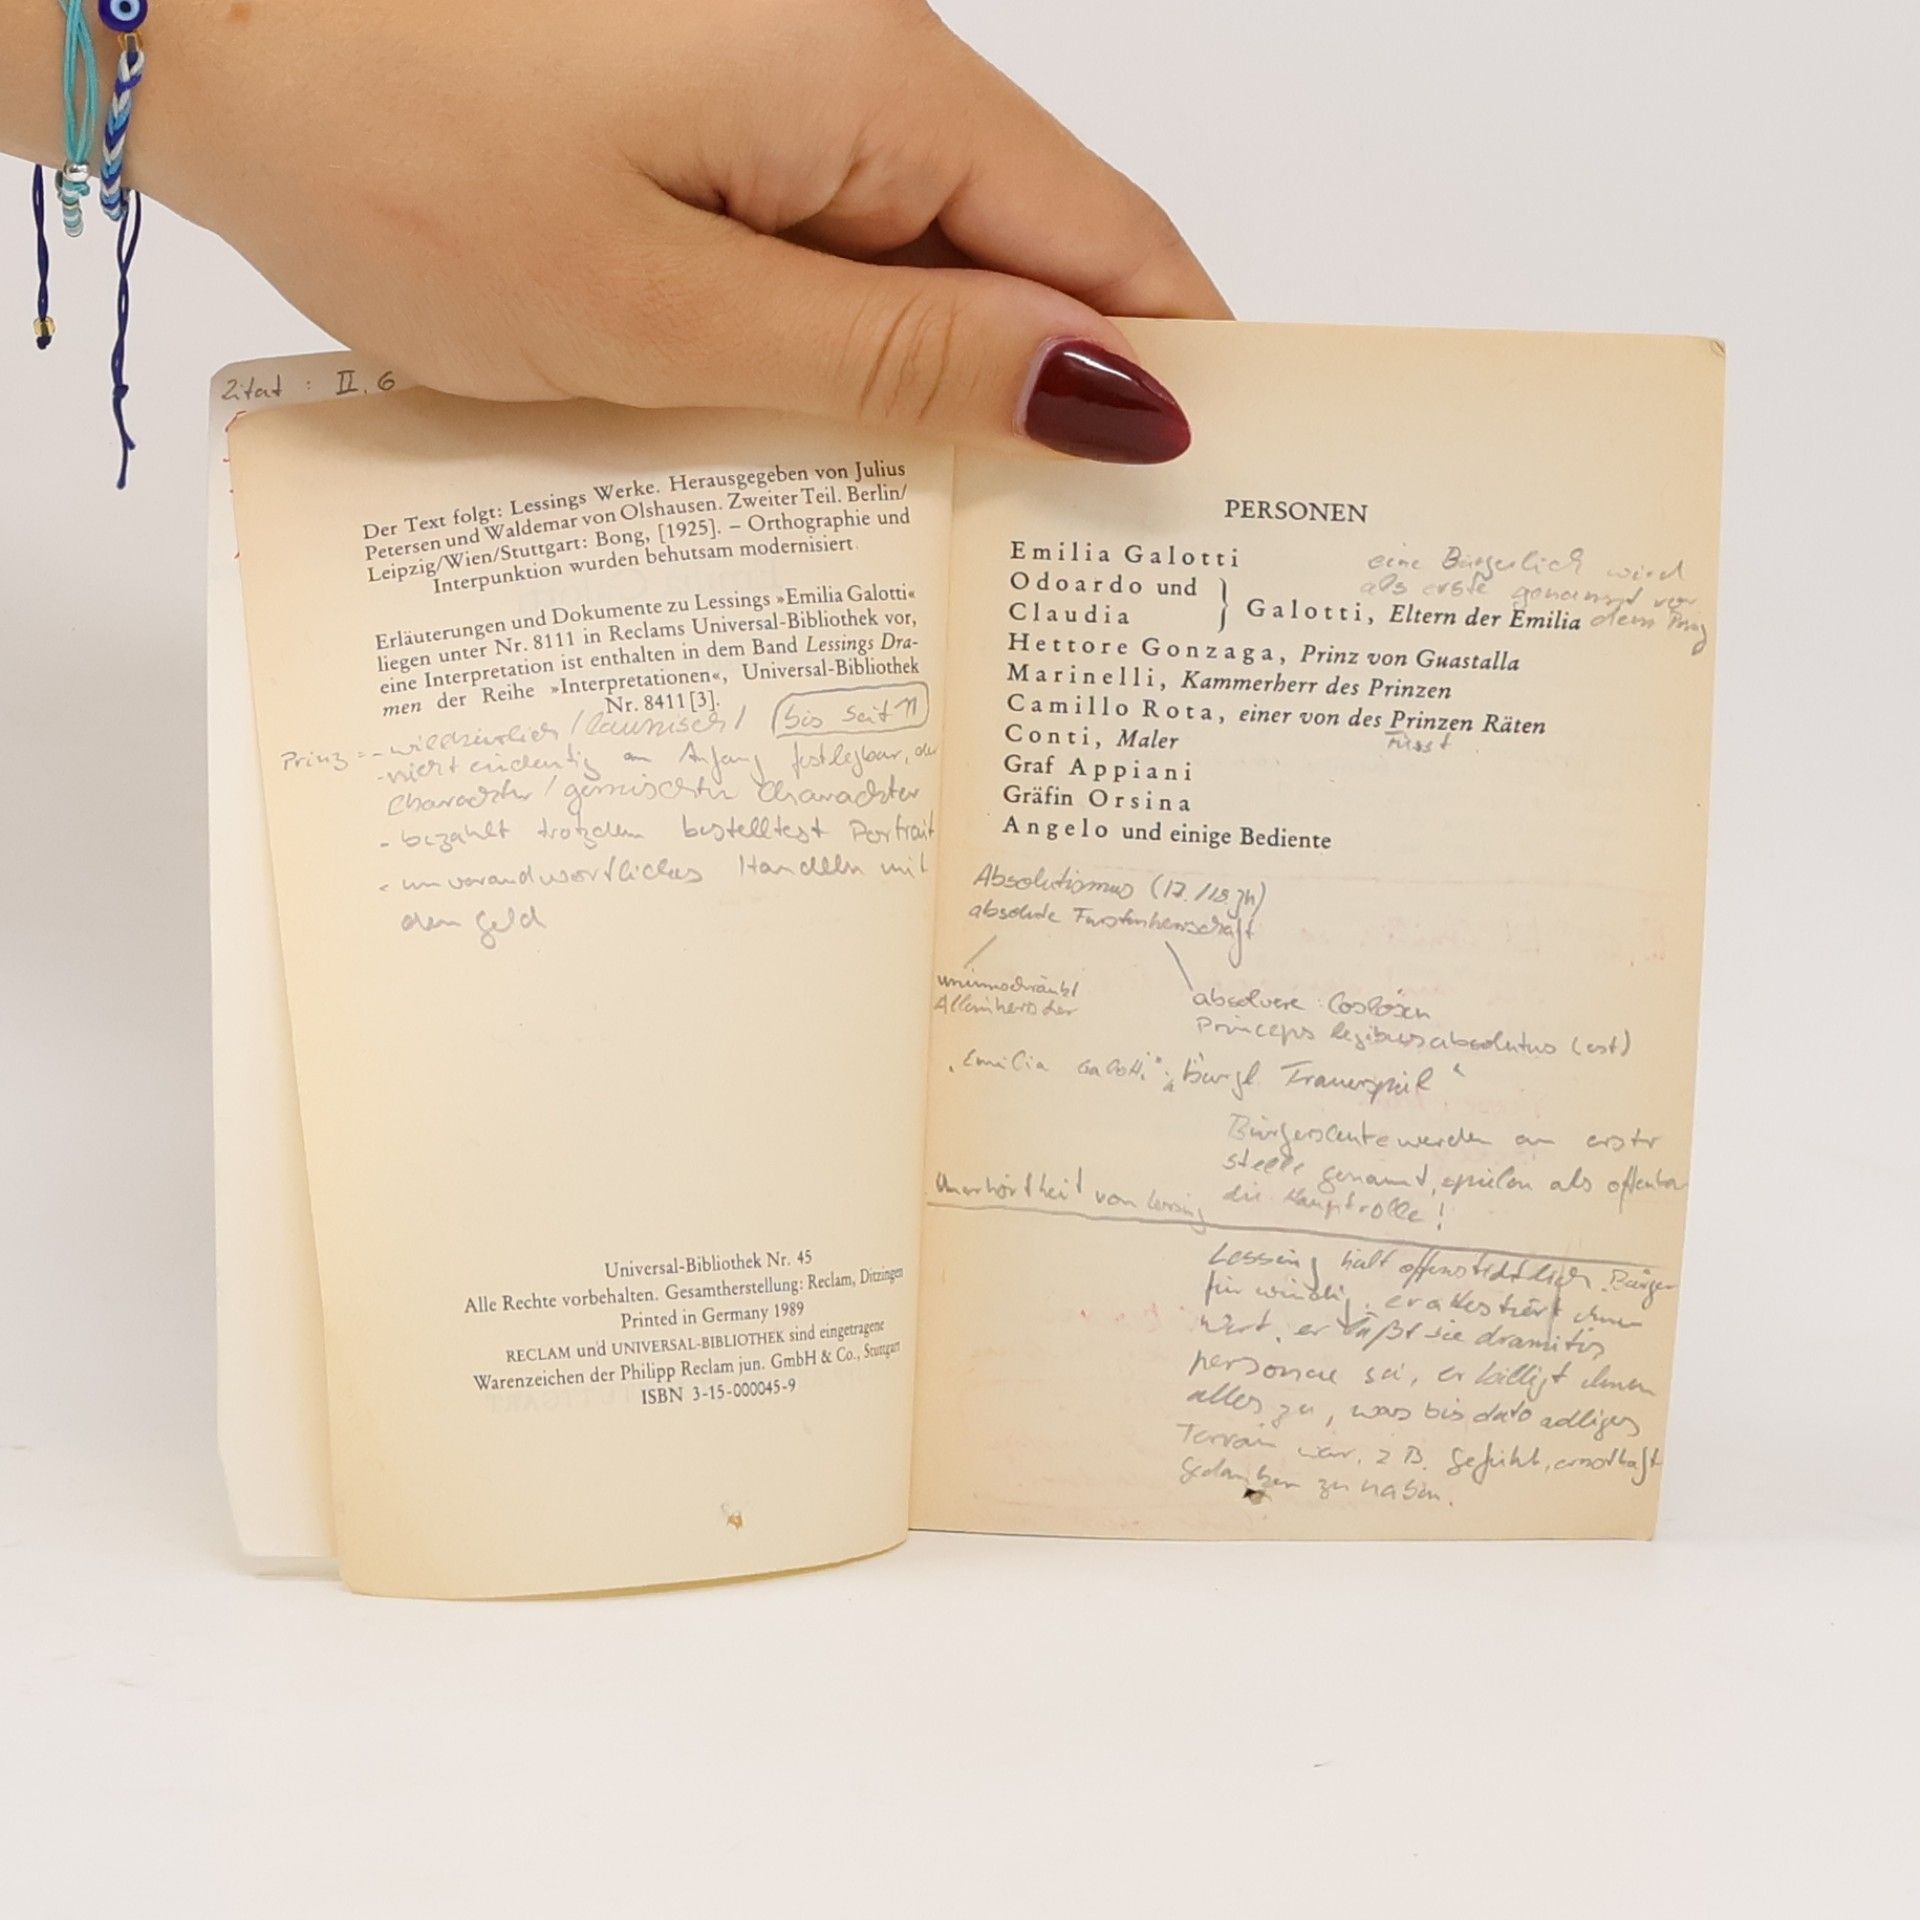 Zitat : II. 6
Der Text folgt: Lessings Werke. Herausgegeben von Julius
Petersen und Waldemar von Olshausen. Zweiter Teil. Berlin/
Leipzig/Wien/Stuttgart: Bong, [1925]. – Orthographie und
Interpunktion wurden behutsam modernisiert.
Erläuterungen und Dokumente zu Lessings »Emilia Galotti«
liegen unter Nr. 8111 in Reclams Universal-Bibliothek vor,
eine Interpretation ist enthalten in dem Band Lessings Dra-
men der Reihe »Interpretationen«, Universal-Bibliothek
Nr. 8411[3].
Prinz = - willkürlich / launisch / bis Seit 11
- nicht eindeutig am Anfang festlegbar, der
Charackter / gemischter Charackter
- bezahlt trotzdem bestelltest Portrait
- unverandwortliches Handeln mit
dem Geld
Universal-Bibliothek Nr. 45
Alle Rechte vorbehalten. Gesamtherstellung: Reclam, Ditzingen
Printed in Germany 1989
RECLAM und UNIVERSAL-BIBLIOTHEK sind eingetragene
Warenzeichen der Philipp Reclam jun. GmbH & Co., Stuttgart
ISBN 3-15-000045-9
PERSONEN
Emilia Galotti
eine Bürgerlich wird
als erste genannt vor
dem Prinz
Odoardo und
Claudia } Galotti, Eltern der Emilia
Hettore Gonzaga, Prinz von Guastalla
Marinelli, Kammerherr des Prinzen
Camillo Rota, einer von des Prinzen Räten
Fürst
Conti, Maler
Graf Appiani
Gräfin Orsina
Angelo und einige Bediente
Absolutismus (17./18. Jh)
absolute Fürstenherrschaft
uneinschränkt
Alleinherrscher
absolvere : loslösen
Princeps legibus absolutus (est)
"Emilia Galotti": "Bürgl. Trauerspiel"
Bürgersleute werden an erster
Stelle genannt, spielen als offenbar
die Hauptrolle!
Unerhörtheit von Lessing
Lessing hält offensichtlich Bürger
für würdig, er attestiert ihnen
Wert, er läßt sie dramatis
personae sei, er billigt ihnen
alles zu, was bis dato adliges
Terrain war, z B. Gefühl, ernsthaft
Gedanken zu haben.